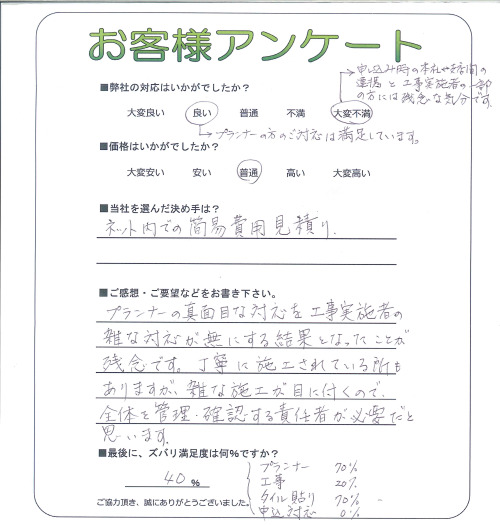 お客様アンケート
申し込み時の本社や支店間の
連携と工事実施者の一部
の方には残念な気分です。
■弊社の対応はいかがでしたか？
大変良い 良い 普通 不満 大変不満
プランナーの方のご対応は満足しています。
■価格はいかがでしたか？
大変安い 安い 普通 高い 大変高い
■当社を選んだ決め手は？
ネット内での簡易費用見積り.
■ご感想・ご要望などをお書き下さい。
プランナーの真面目な対応を工事実施者の
雑な対応が無にする結果となったことが
残念です。丁寧に施工されている所も
ありますが、雑な施工が目に付くので、
全体を管理・確認する責任者が必要だと
思います。
■最後に、ズバリ満足度は何％ですか？
40 %
プランナー 70%
工事 20%
タイル貼り 70%
申込対応 0%
ご協力頂き、誠にありがとうございました。